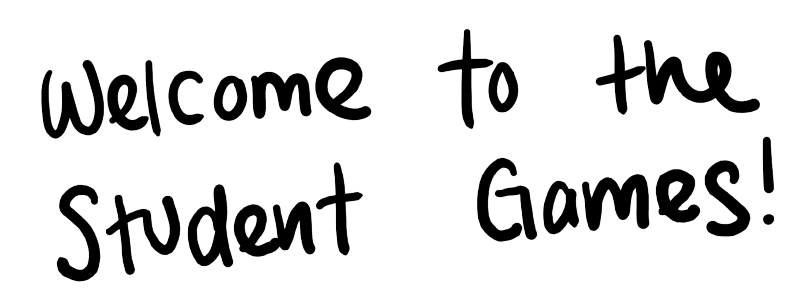 Welcome to the
Student Games!